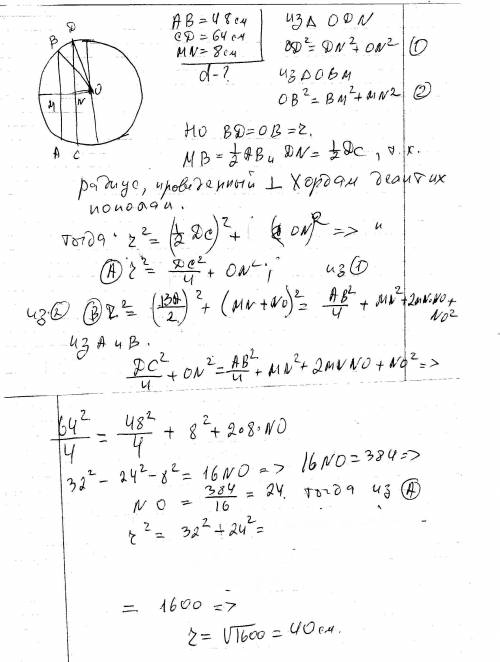 B D
O
M N
A C
AB = 48 см
CD = 64 см
MN = 8 см
d - ?
из △ ODN
OD² = DN² + ON² ①
из △ OBM
OB² = BM² + MN² ②
Но BD = OB = r.
MB = 1/2 AB и DN = 1/2 DC, т.к.
радиус, проведенный ⊥ хордам делит их
пополам.
тогда r² = (1/2 DC)² + (ON)² =>
Ⓐ r² = DC²/4 + ON²; из ①
из ② Ⓑ r² = (BA/2)² + (MN + NO)² = AB²/4 + MN² + 2MN·NO +
NO²
из A и B.
DC²/4 + ON² = AB²/4 + MN² + 2MN NO + NO² =>
64²/4 = 48²/4 + 8² + 2·8·NO
32² - 24² - 8² = 16NO => 16NO = 384 =>
NO = 384/16 = 24. тогда из Ⓐ
r² = 32² + 24² =
= 1600 =>
r = √1600 = 40 см.